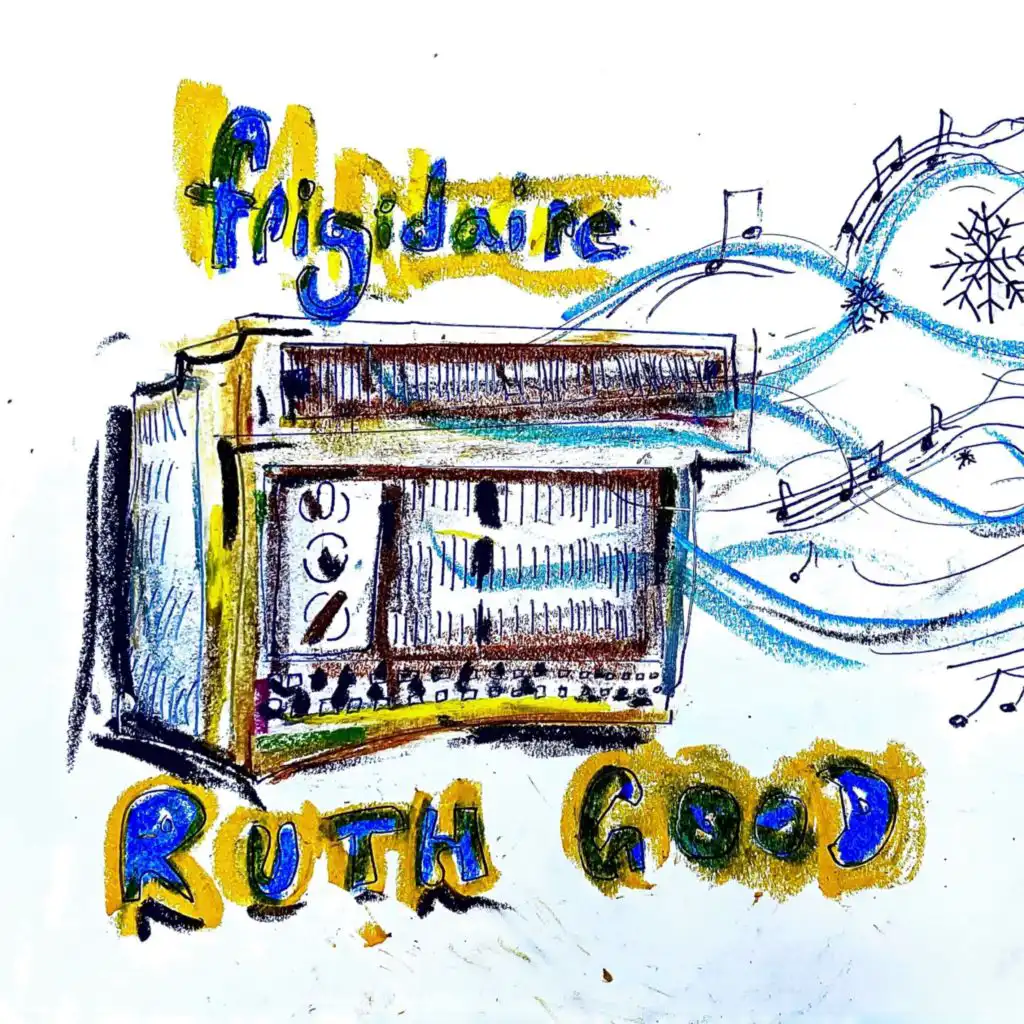 frigidaire
RUTH GOOD